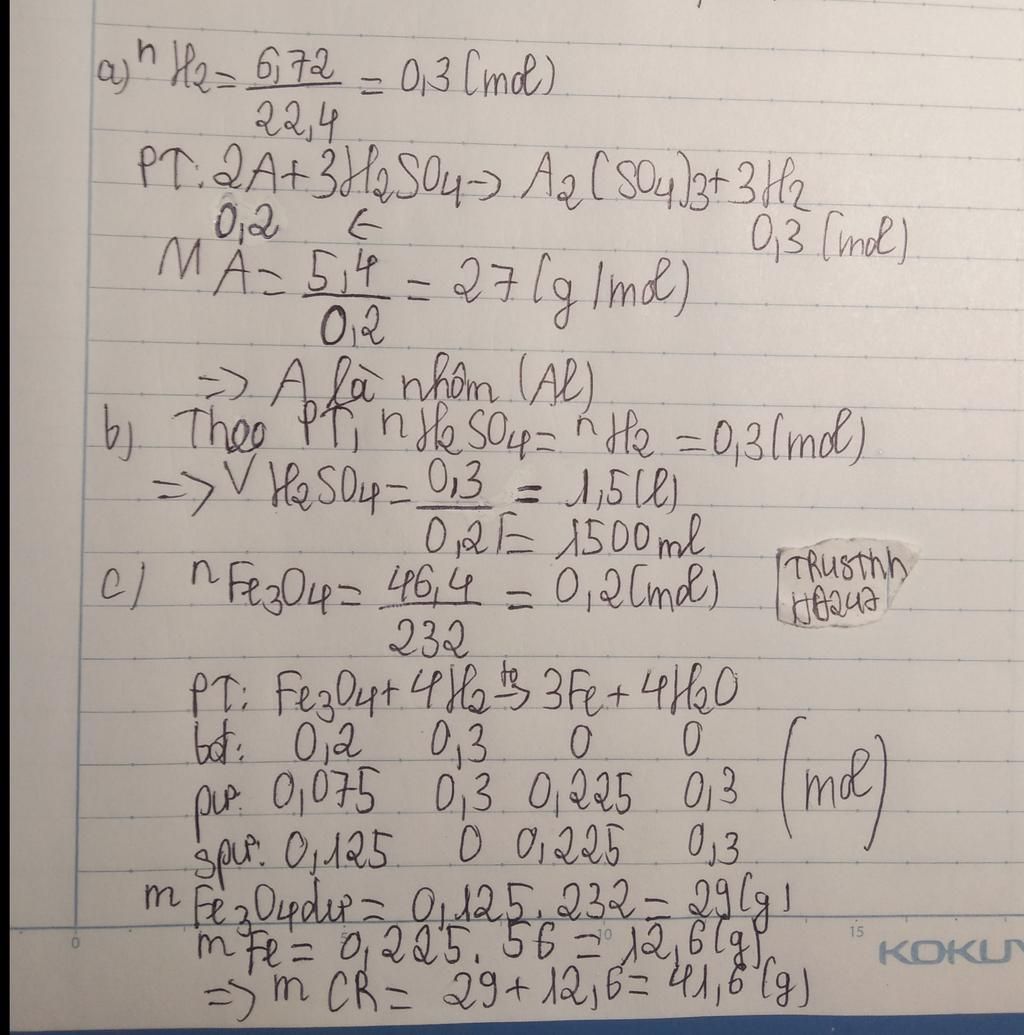 a) nH2 = 6,72/22,4 = 0,3 (mol)
PT: 2A + 3H2SO4 → A2(SO4)3 + 3H2
0,2 ← 0,3 (mol)
MA = 5,4/0,2 = 27 (g/mol)
=> A là nhôm (Al)
b) Theo PT, nH2SO4 = nH2 = 0,3 (mol)
=> VH2SO4 = 0,3/0,2 = 1,5 (l)
= 1500 ml
c) nFe3O4 = 46,4/232 = 0,2 (mol)
PT: Fe3O4 + 4H2 →to 3Fe + 4H2O
bđ: 0,2 0,3 0 0
pư: 0,075 0,3 0,225 0,3 (mol)
spư: 0,125 0 0,225 0,3
mFe3O4 dư = 0,125 . 232 = 29 (g)
mFe = 0,225 . 56 = 12,6 (g)
=> mCR = 29 + 12,6 = 41,6 (g)
0 10 15 KOKUY